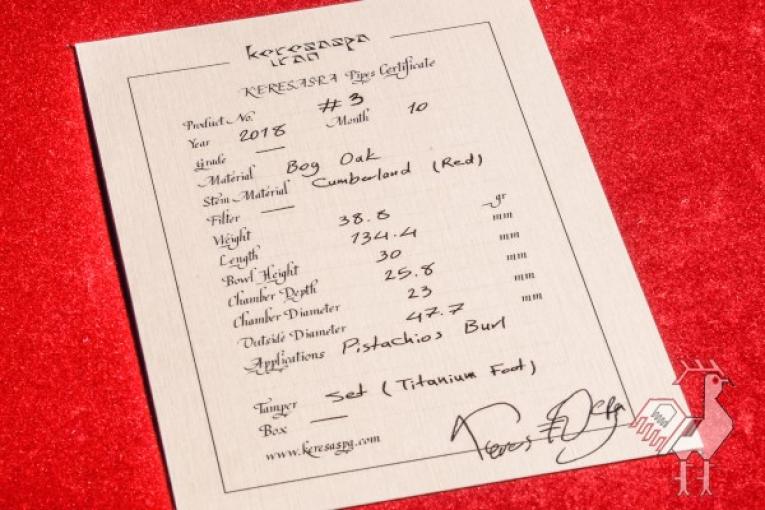 keresaspa
iran
KERESASPA Pipes Certificate
Product No. #3
Year 2018 Month 10
Grade —
Material Bog Oak
Stem Material Cumberland (Red)
Filter —
Weight 38.8 gr
Length 134.4 mm
Bowl Height 30 mm
Chamber Depth 25.8 mm
Chamber Diameter 23 mm
Outside Diameter 47.7 mm
Applications Pistachios Burl
Tamper Set (Titanium Foot)
Box —
www.keresaspa.com